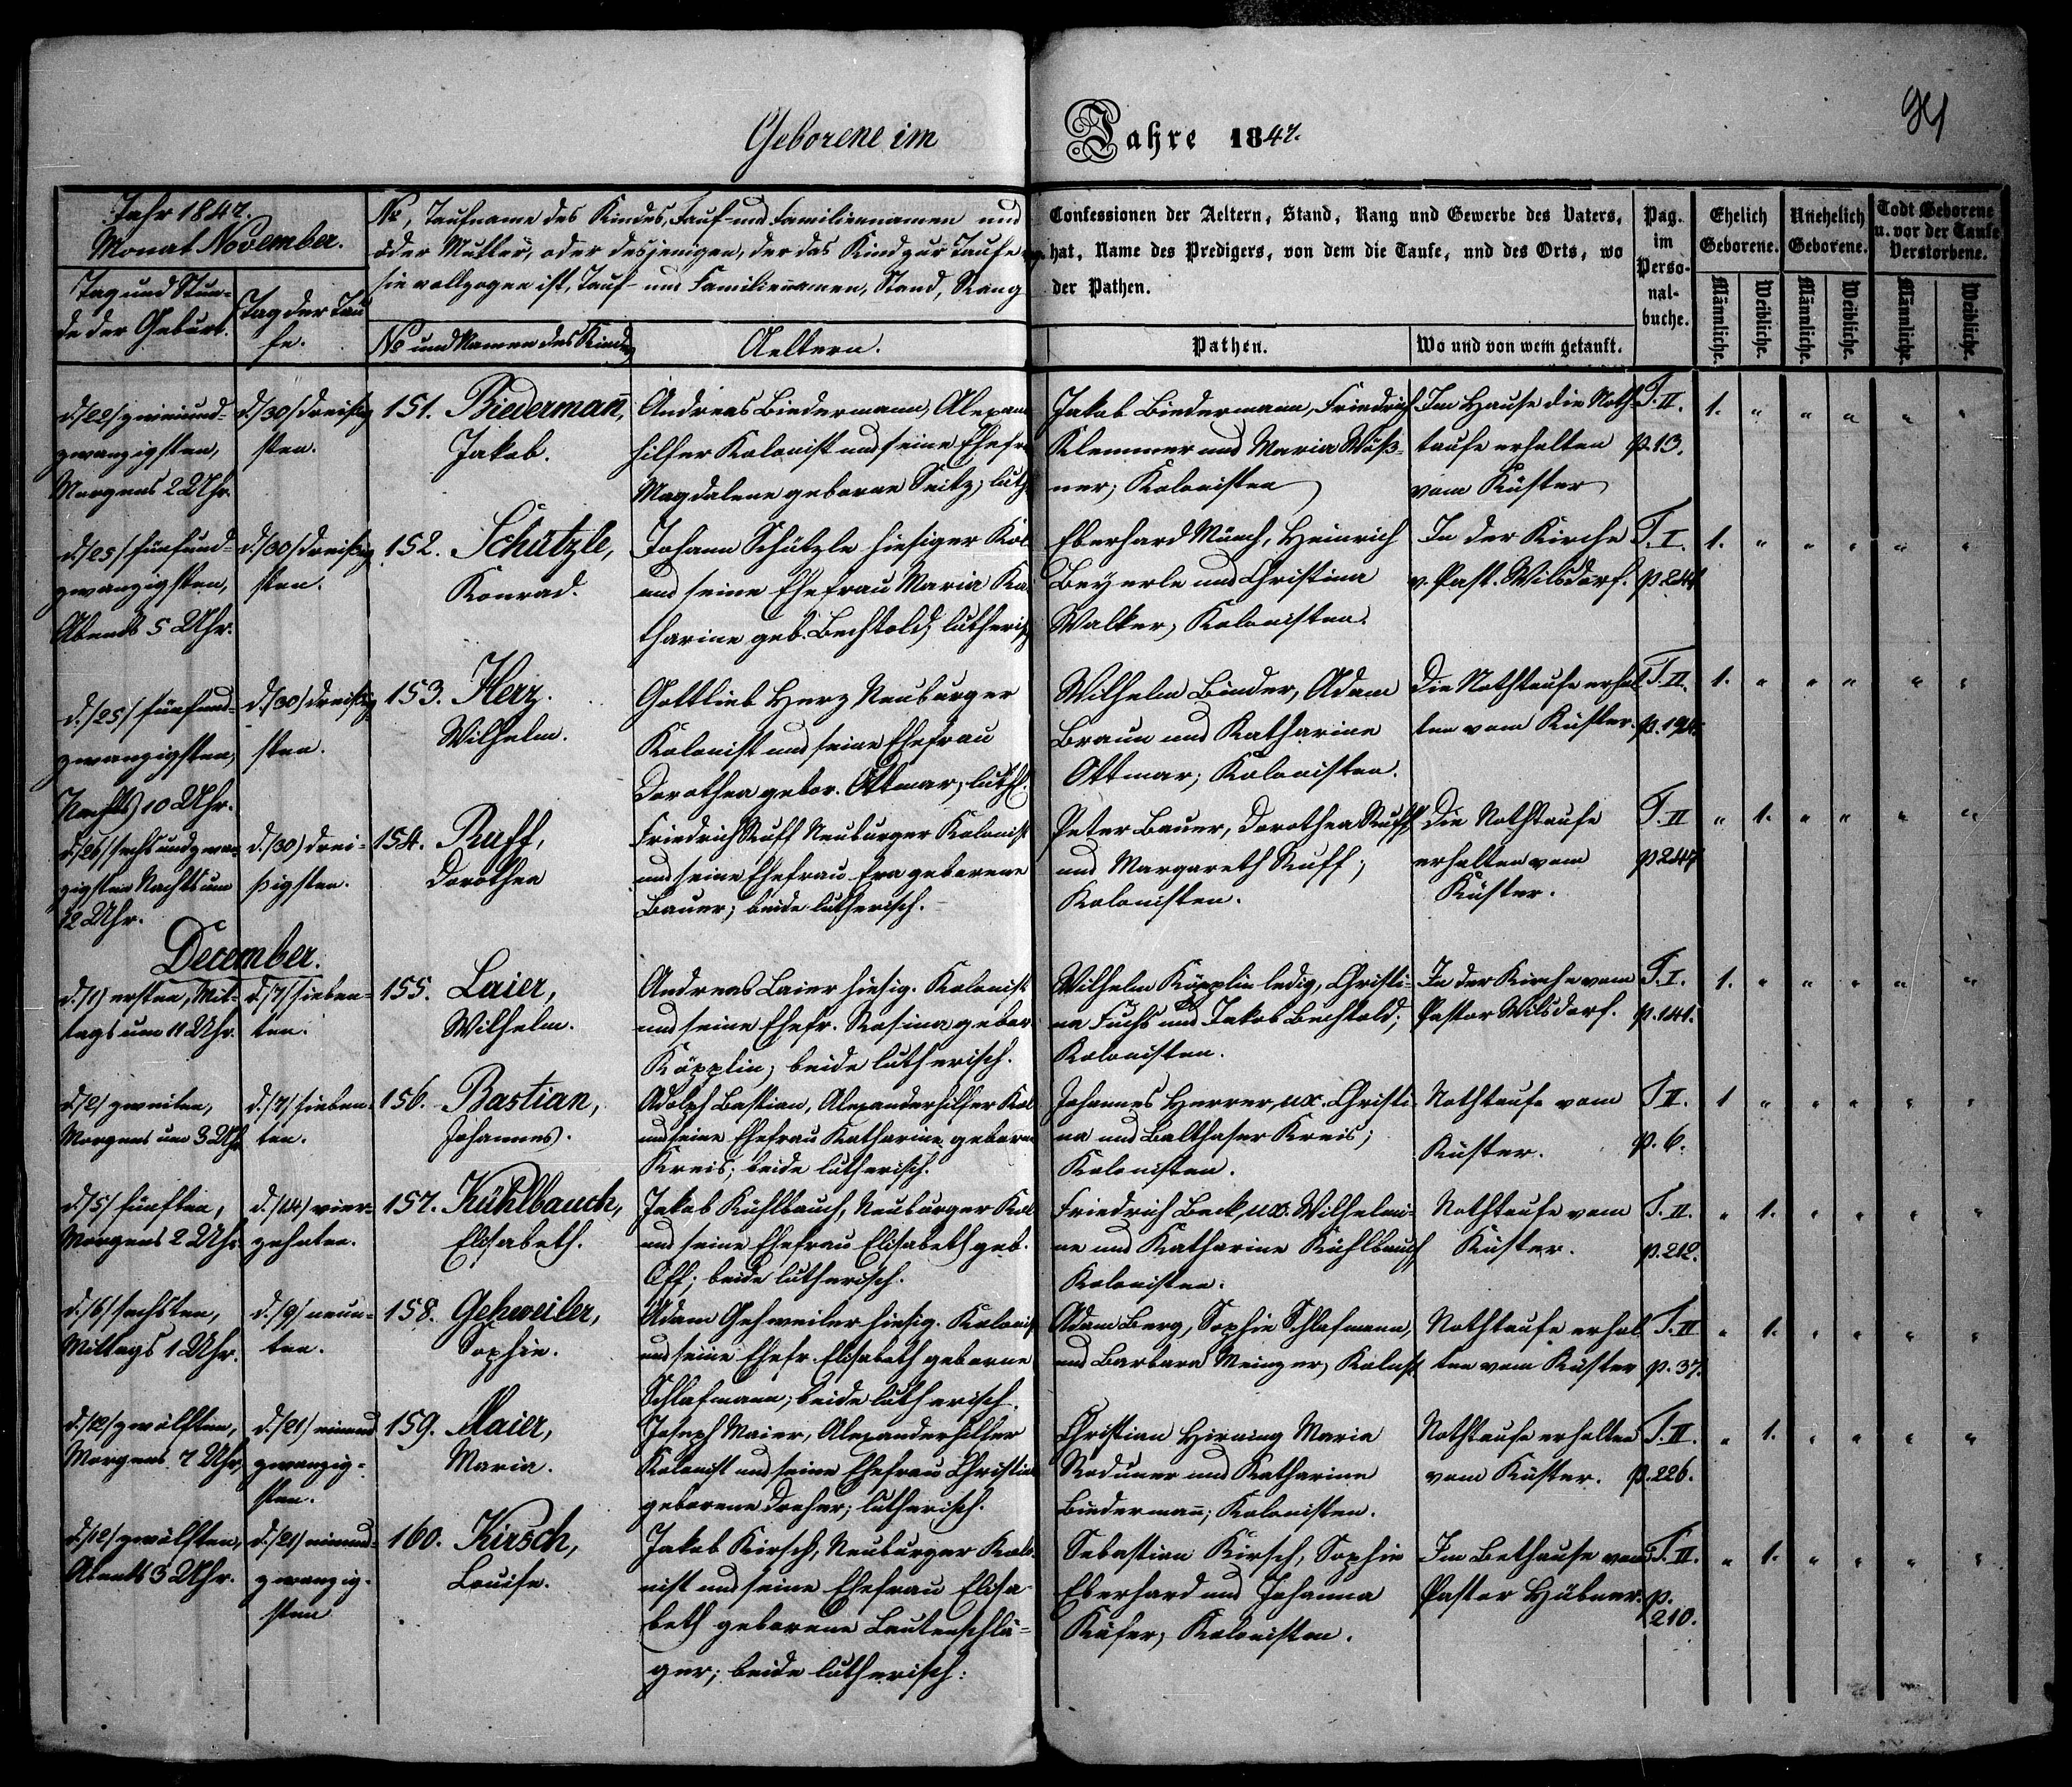 Geborene im Jahre 1847.
91
Jahr 1847.
Monat November.
Tag und Stun-
de der Geburt.
Tag der Tau
fe.
No, Taufname des Kindes, Tauf- und Familiennamen und
oder Mutter, oder desjenigen, der das Kind zur Taufe
sie vollzogen ist, Tauf- und Familiennamen, Stand, Rang
No und Namen des Kindes
Aeltern.
Confessionen der Aeltern, Stand, Rang und Gewerbe des Vaters,
hat, Name des Predigers, von dem die Taufe, und des Orts, wo
der Pathen.
Pathen.
Wo und von wem getauft.
Pag.
im
Perso-
nal-
buche.
Ehelich
Geborene.
Unehelich
Geborene.
Todt Geborene
u. vor der Taufe
Verstorbene.
Männliche.
Weibliche.
Männliche.
Weibliche.
Männliche.
Weibliche.
d./22/ zweiund-
zwanzigsten,
Morgens 2 Uhr.
d./30/ dreißig
sten.
151. Biedermañ,
Jakob.
Andreas Biedermann, Alexan
hilfer Kolonist und seine Ehefr
Magdalene geborne Seitz; luth
Jakob Biedermann, Friedrich
Klemmer und Maria Wöß-
ner; Kolonisten
Im Hause die Noth-
taufe erhalten
vom Küster
T. II.
p. 13.
1. " " " " "
d./25/ fünfund-
zwanzigsten,
Abends 5 Uhr.
d./30/ dreißig
sten.
152. Schützle,
Konrad.
Johann Schützle hiesiger Kol
und seine Ehefrau Maria Ka
tharine geb. Bechtold; lutherisch
Eberhard Münch, Heinrich
Beyerle und Christina
Walker, Kolonisten.
In der Kirche
v. Past. Wilsdorf.
T. I.
p. 244
1. " " " " "
d./25/ fünfund-
zwanzigsten,
Nachts 10 Uhr.
d./30/ dreißig
sten.
153. Herz.
Wilhelm.
Gottlieb Herz Neuburger
Kolonist und seine Ehefrau
Dorothea gebor. Ottmar; luth.
Wilhelm Binder, Adam
Braun und Katharine
Ottmar; Kolonisten.
Die Nothtaufe erhal
ten vom Küster.
T. II.
1. " " " " "
d./26/ sechsundzwan
zigsten Nachts um
12 Uhr.
d./30/ drei-
ßigsten.
154. Ruff,
Dorothea
Friedrich Ruff Neuburger Kolonist
und seine Ehefrau Eva geborene
Bauer; beide lutherisch.
Peter Bauer, Dorothea Ruff
und Margareth Ruff;
Kolonisten.
Die Nothtaufe
erhalten vom
Küster.
T. II
p 247
" 1. " " " "
December.
d./1/ ersten, Mit-
tags um 11 Uhr.
d./7/ sieben-
ten.
155. Laier,
Wilhelm.
Andreas Laier hiesig. Kolonist
und seine Ehefr. Rosina gebor.
Köpplin; beide lutherisch.
Wilhelm Köpplin ledig, Christi-
na Fuchs und Jakob Bechtold;
Kolonisten.
In der Kirche vom
Pastor Wilsdorf.
T. I.
p. 141.
1. " " " " "
d./2/ zweiten,
Morgens um 3 Uhr
d./7/ sieben-
ten.
156. Bastian,
Johannes.
Adolph Bastian, Alexanderhilfer Kol
und seine Ehefrau Katharine geborne
Kreis; beide lutherisch.
Johannes Herrer, ux. Christi-
na und Balthasar Kreis;
Kolonisten.
Nothtaufe vom
Küster.
T. II.
p. 6.
1 " " " " "
d./5/ fünften,
Morgens 2 Uhr.
d./14/ vier-
zehnten.
157. Kühlbauch,
Elisabeth.
Jakob Kühlbauch, Neuburger Kol
und seine Ehefrau Elisabeth geb.
Off; beide lutherisch.
Friedrich Beck, ux. Wilhelmi-
ne und Katharine Kühlbauch
Kolonisten.
Nothtaufe vom
Küster.
T. II.
p. 212.
" 1. " " " "
d./6/ sechsten,
Mittags 1 Uhr.
d./9/ neun-
ten.
158. Gehweiler,
Sophie.
Adam Gehweiler hiesig. Kolonist
und seine Ehefr. Elisabeth geborne
Schlafmann; beide lutherisch.
Adam Berg, Sophie Schlafmann,
und Barbara Meinzer, Kolnist
Nothtaufe erhal
ten vom Küster
T. II
p. 37.
" 1. " " " "
d./12/ zwölften,
Morgens 7 Uhr,
d./21/ einund
zwanzig-
sten.
159. Maier,
Maria.
Joseph Maier, Alexanderhilfer
Kolonist und seine Ehefrau Christine
geborene Dreher; lutherisch.
Christian Hirning Maria
Rodunner und Katharine
Biedermañ; Kolonisten.
Nothtaufe erhalten
vom Küster.
T. II.
p. 226.
" 1. " " " "
d./12/ zwölften,
Abends 3 Uhr.
d./21/ einund-
zwanzig-
sten
160. Kirsch,
Louise.
Jakob Kirsch, Neuburger Kolo-
nist und seine Ehefrau Elisa-
beth geborene Lautenschlä-
ger; beide lutherisch:
Sebastian Kirsch, Sophie
Eberhard und Johanna
Käfer, Kolonisten.
Im Bethause vom
Pastor Hübner.
T. II.
p.
210.
" 1. " " " "